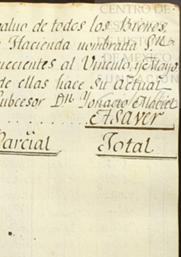 valuo de todos los Bienes,
Hacienda nombrada Sn.
necientes al Vinculo, y Mayo
de ellas hace su Actual
Subcesor Dn. Ygnacio
ASAVER
Parcial Total